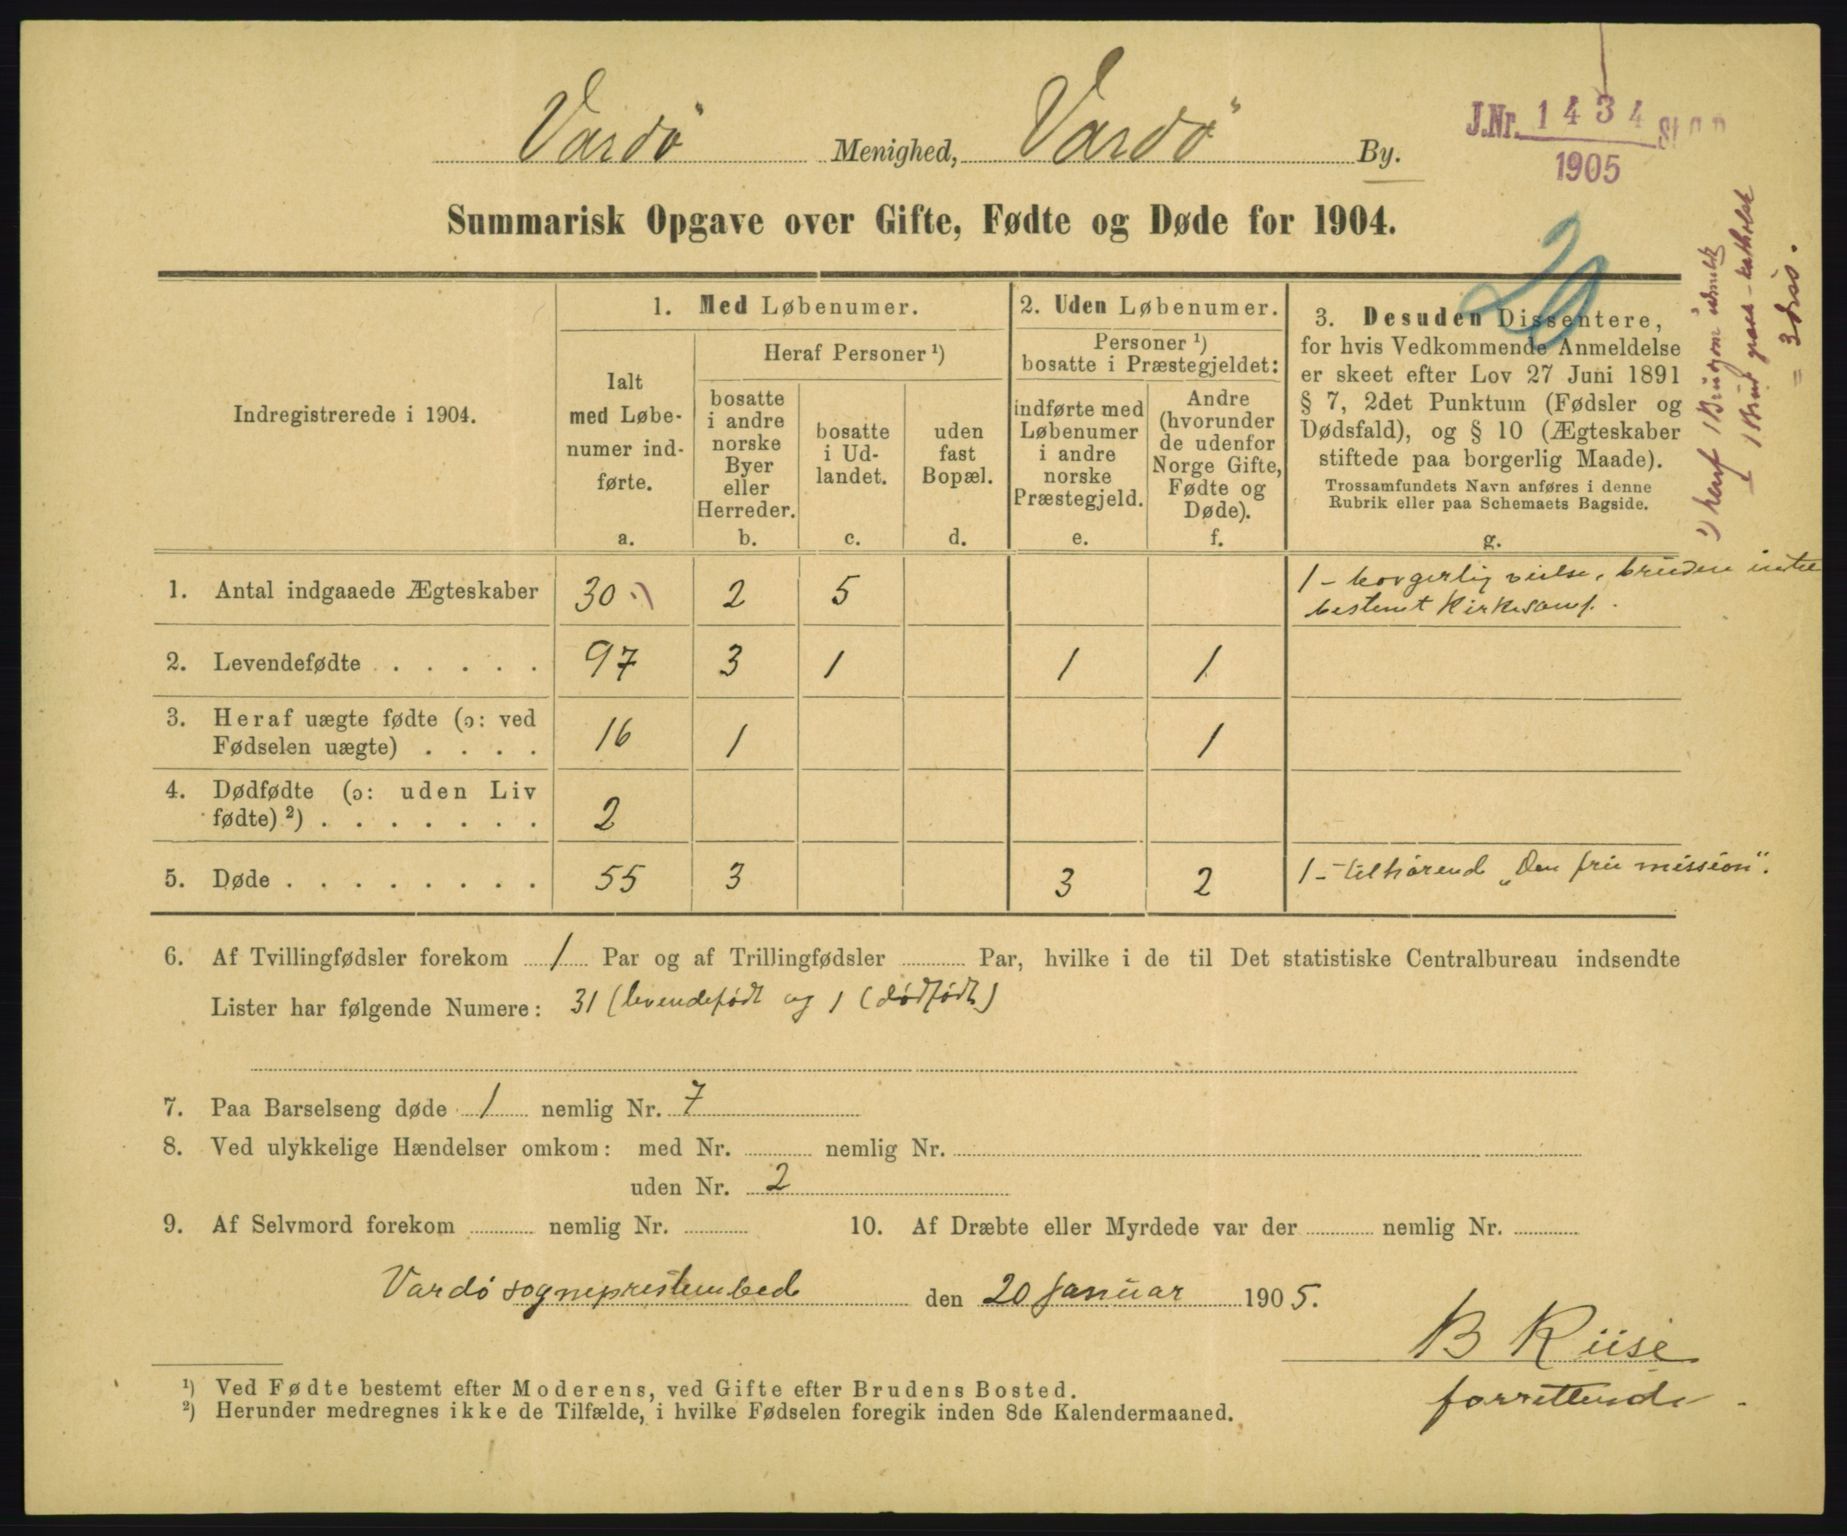 Vardø Menighed, Vardø By.
J.Nr. 1434
1905
Summarisk Opgave over Gifte, Fødte og Døde for 1904.
20
Indregistrerede i 1904.
1. Med Løbenumer.
Ialt
med Løbe-
numer ind-
førte.
a.
Heraf Personer ¹)
bosatte
i andre
norske
Byer
eller
Herreder.
b.
bosatte
i Ud-
landet.
c.
uden
fast
Bopæl.
d.
2. Uden Løbenumer.
Personer ¹)
bosatte i Præstegjeldet:
indførte med
Løbenumer
i andre
norske
Præstegjeld.
e.
Andre
(hvorunder
de udenfor
Norge Gifte,
Fødte og
Døde).
f.
3. Desuden Dissentere,
for hvis Vedkommende Anmeldelse
er skeet efter Lov 27 Juni 1891
§ 7, 2det Punktum (Fødsler og
Dødsfald), og § 10 (Ægteskaber
stiftede paa borgerlig Maade).
Trossamfundets Navn anføres i denne
Rubrik eller paa Schemaets Bagside.
g.
¹) heraf 1 Brudgom
1 Brud græsk-katholsk
= 3 diss.
1. Antal indgaaede Ægteskaber 30 ¹) 2 5 1 - borgerlig vielse, bruden intet
bestemt Kirkesamf.
2. Levendefødte . . . . . 97 3 1 1 1
3. Heraf uægte fødte (ɔ: ved
Fødselen uægte) . . . . 16 1 1
4. Dødfødte (ɔ: uden Liv
fødte) ²) . . . . . . . 2
5. Døde . . . . . . . . 55 3 3 2 1 - tilhørend „Den frie mission".
6. Af Tvillingfødsler forekom 1 Par og af Trillingfødsler Par, hvilke i de til Det statistiske Centralbureau indsendte
Lister har følgende Numere: 31 (levendefødt og 1 (dødfødt)
7. Paa Barselseng døde 1 nemlig Nr. 7
8. Ved ulykkelige Hændelser omkom: med Nr. nemlig Nr.
uden Nr. 2
9. Af Selvmord forekom nemlig Nr. 10. Af Dræbte eller Myrdede var der nemlig Nr.
Vardø sogneprestembede den 20 januar 1905.
B Riise
forrettende
¹) Ved Fødte bestemt efter Moderens, ved Gifte efter Brudens Bosted.
²) Herunder medregnes ikke de Tilfælde, i hvilke Fødselen foregik inden 8de Kalendermaaned.